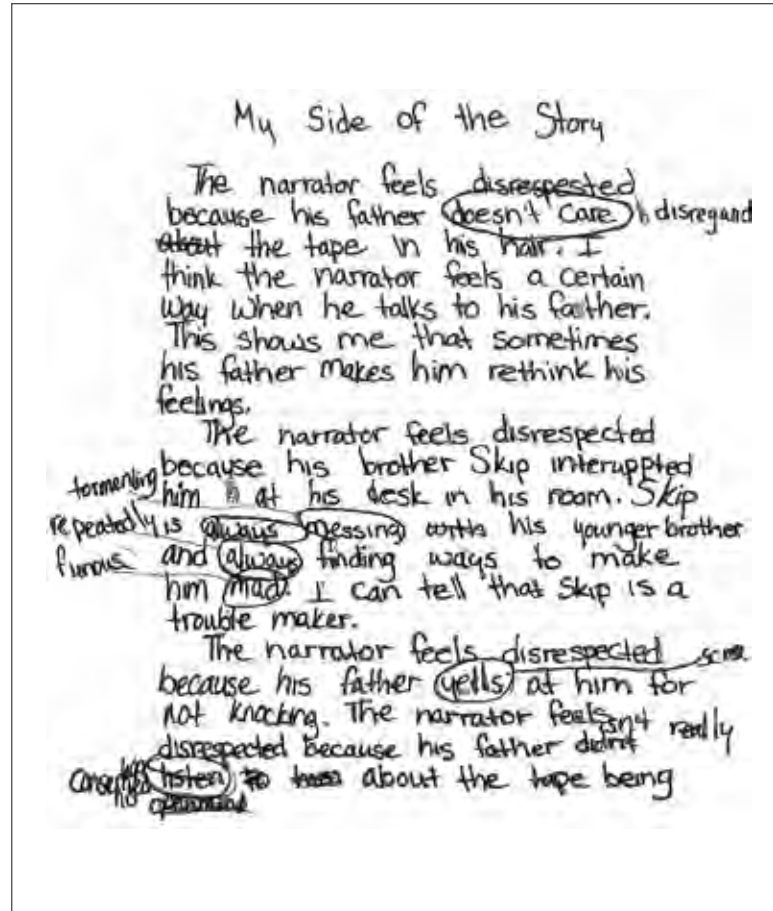 My Side of the Story
The narrator feels disrespested
because his father doesn't care disregard
about the tape in his hair. I
think the narrator feels a certain
way when he talks to his father.
This shows me that sometimes
his father makes him rethink his
feelings.
The narrator feels disrespected
because his brother Skip interuppted
tormenting him at his desk in his room. Skip
repeatedly is always messing with his younger brother
furious and always finding ways to make
him mad. I can tell that Skip is a
trouble maker.
The narrator feels disrespected
because his father yells at him for
not knocking. The narrator feels
isn't really
disrespected because his father didn't
listen to about the tape being